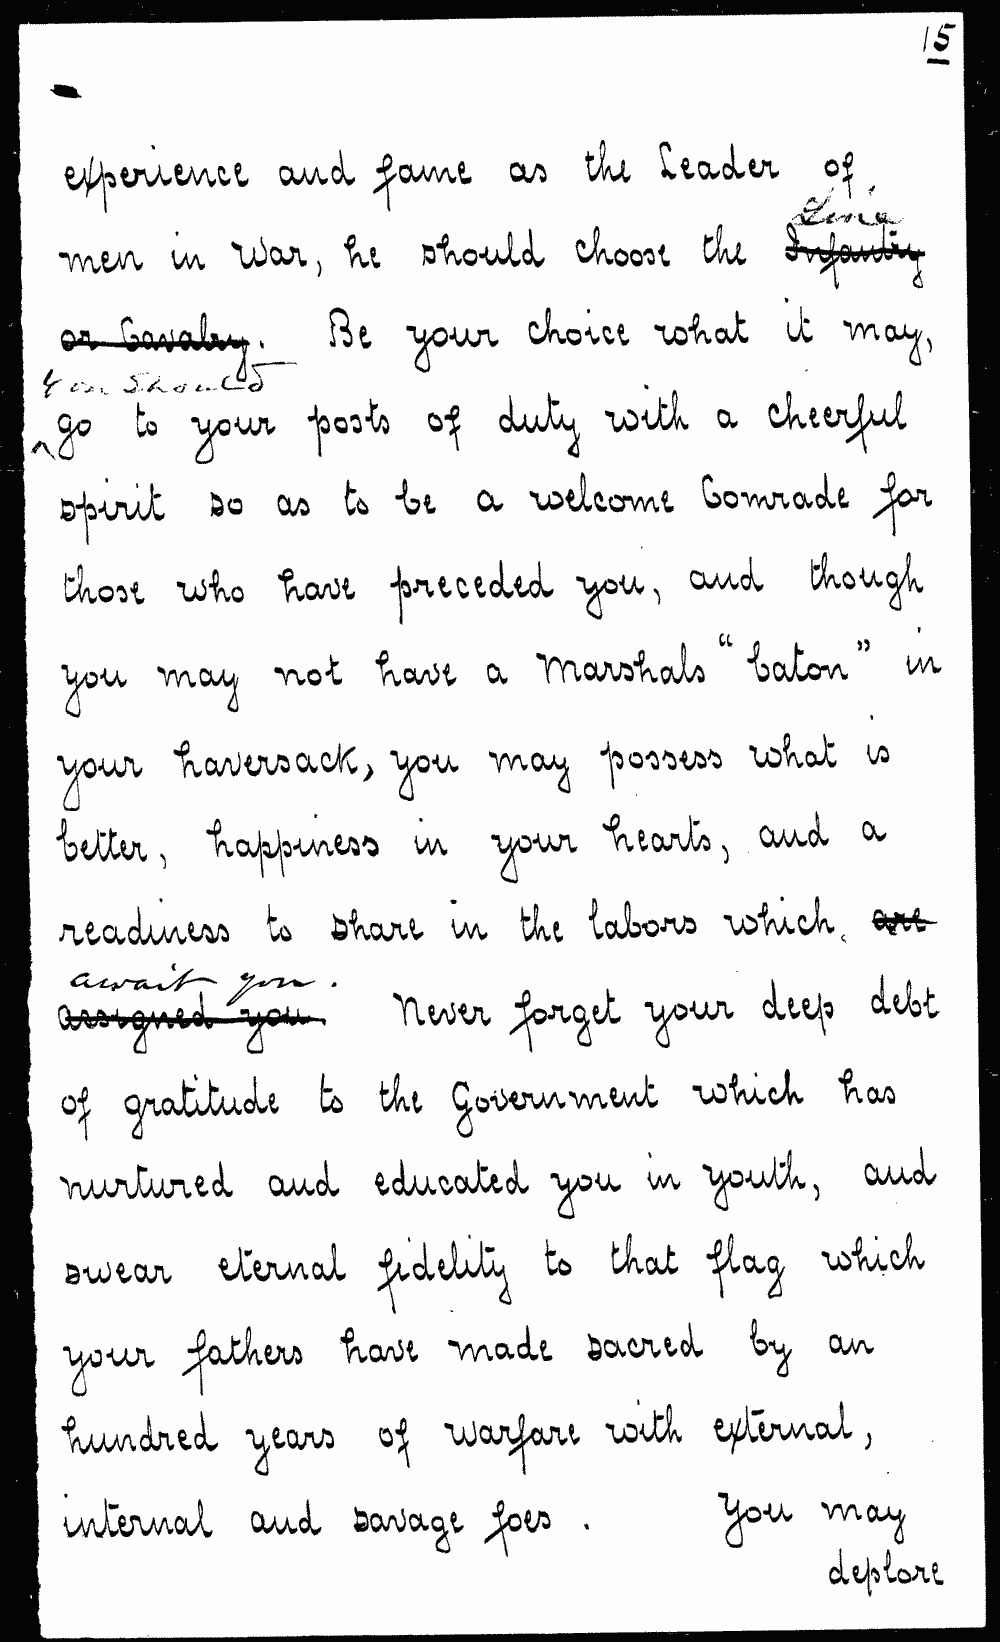 15
experience and fame as the Leader of
Line
men in War, he should choose the Infantry
or Cavalry. Be your choice what it may,
You should
^go to your posts of duty with a cheerful
spirit so as to be a welcome Comrade for
those who have preceded you, and though
you may not have a Marshals "baton" in
your haversack, you may possess what is
better, happiness in your hearts, and a
readiness to share in the labors which are
await you.
assigned you. Never forget your deep debt
of gratitude to the Government which has
nurtured and educated you in youth, and
swear eternal fidelity to that flag which
your fathers have made sacred by an
hundred years of warfare with external,
internal and savage foes. You may
deplore